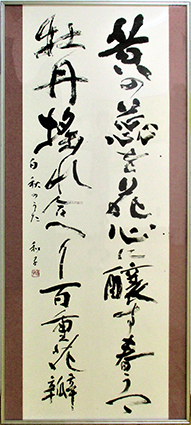 黄の蕊を花心に醸す春うつゝ
牡丹揺れ合へり百重花瓣
白秋のうた